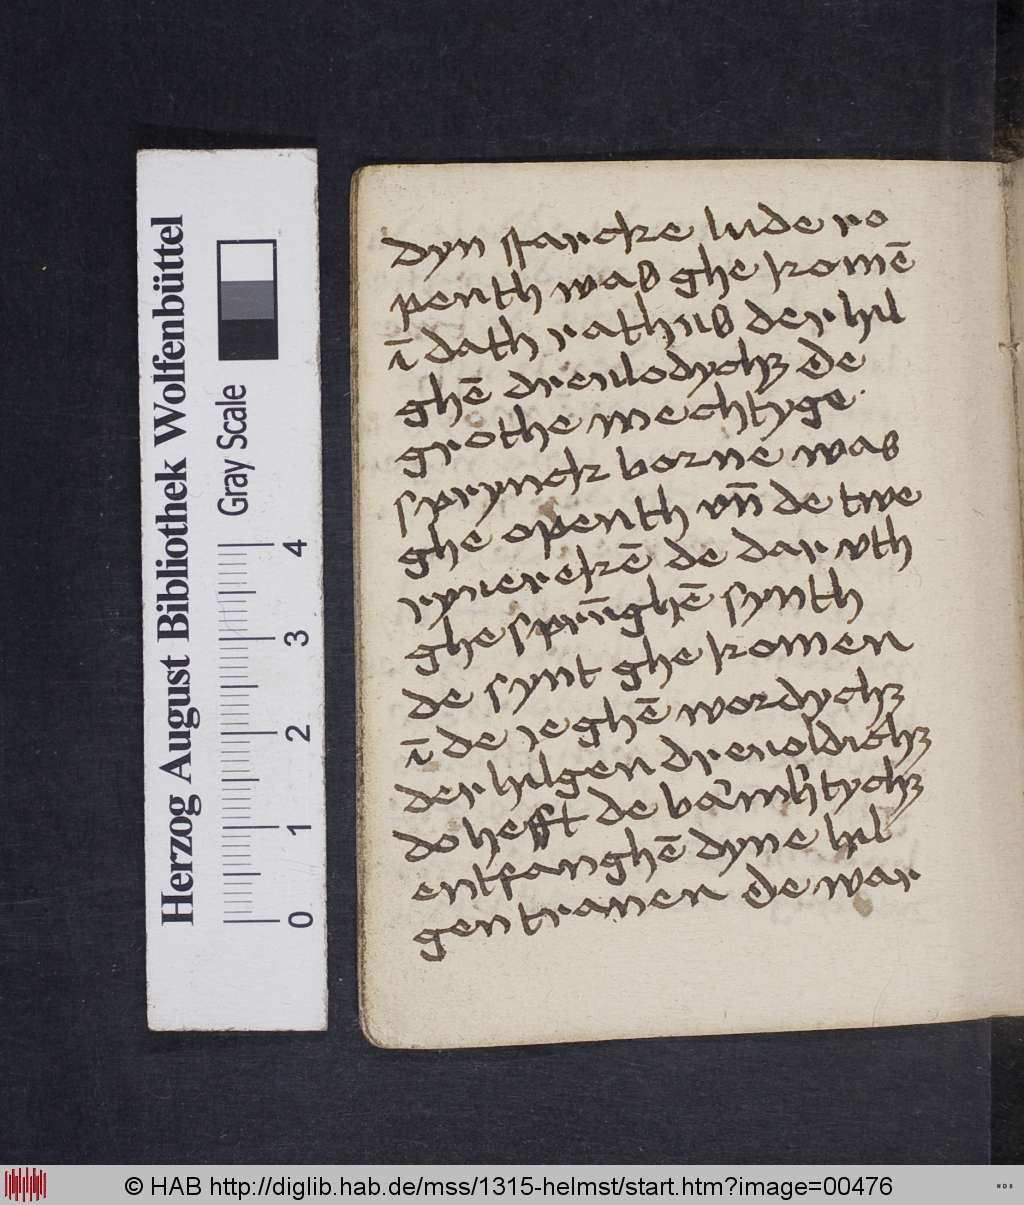 dyn starcke lude ro
penth was ghe komē
ī dath rathus der hil
ghē dreuolodychz de
grothe mechtyge
sprynck borne was
ghe openth vn̄ de twe
ryuerekē de dar vth
ghe sprīghē synth
de synt ghe komen
ī de ieghē wordychz
der hilgen dreuoldichz
do hefft de
entfanghē dyne hil
gen tranen de war
Herzog August Bibliothek Wolfenbüttel
Gray Scale
0 1 2 3 4
© HAB http://diglib.hab.de/mss/1315-helmst/start.htm?image=00476